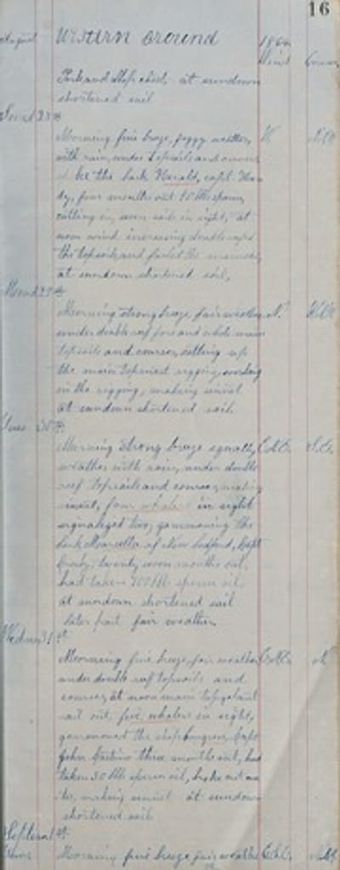 16
August Western Ground 1864
Wind Course
at sundown
shortened sail
Sund 28th
Morning fine breeze, foggy weather, W
with rain, under topsails and courses
the bark Herald, capt
four months out 90 bbls sperm,
cutting in, seven sails in sight, at
noon wind increasing double reefed
the topsails and furled the mainsail,
at sundown shortened sail,
Mond 29th
Morning strong breeze, fair weather, N.
under double reef fore and whole main
topsails and courses, setting up
the main topmast rigging, working
in the rigging, making sinnet
at sundown shortened sail
Tues 30th
Morning strong breeze squally
weather with rain, under double
reef topsails and courses, making
sinnet, four whalers in sight
signalized two, gammoning the
bark Marcella of New Bedford, Capt
twenty seven months out,
had taken 700 bbls sperm oil
at sundown shortened sail
later part fair weather
Wednes 31st
Morning fine breeze, fair weather
under double reef topsails and
courses, at noon main topgallant
sail set, five whalers in sight,
gammoned the ship Congress, Capt
John three months out, had
taken 30 bbls sperm oil,
making sinnet at sundown
shortened sail
September 1st
Morning fine breeze fair weather